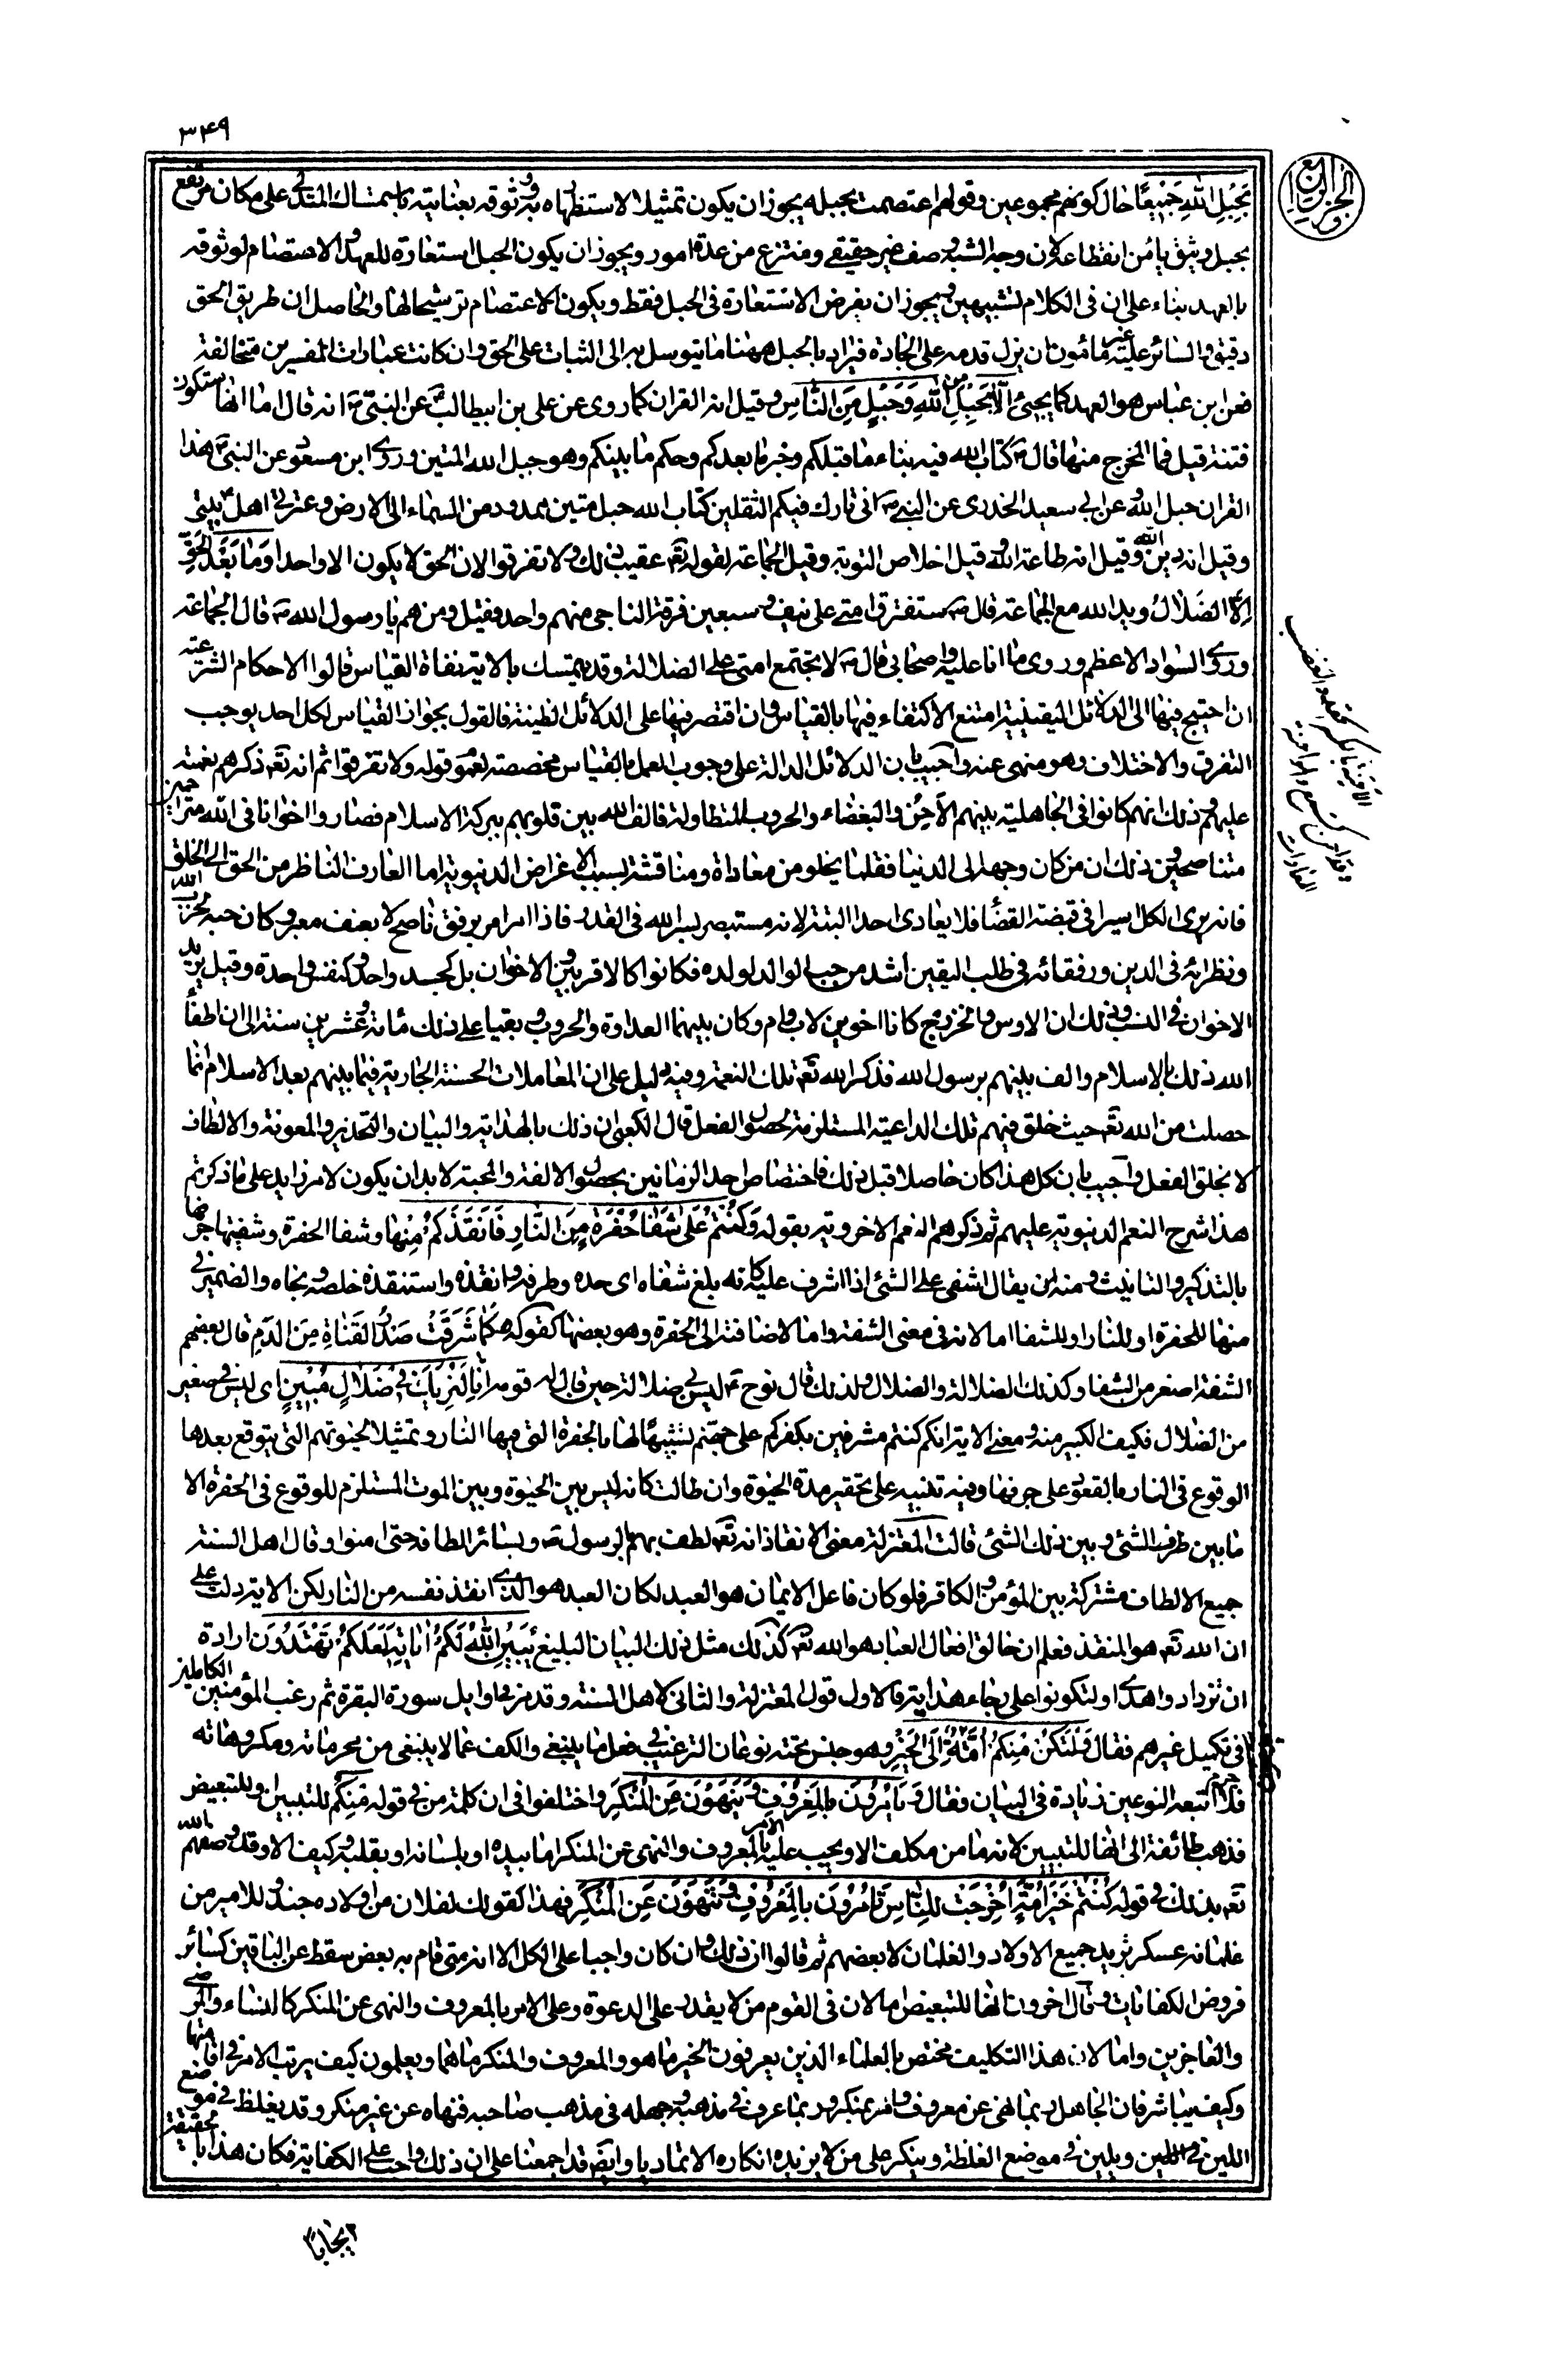 ۳۴۹
الجزء الرابع
بِحَبْلِ اللهِ جَمِيعًا حال كونهم مجموعين وقولهم اعتصمت بحبله يجوز ان يكون تمثيلا لاستظهاره به ووثوقه بعنايته باستمساك المتدلى على مكان مرتفع
بحبل وثيق يأمن انقطاعه لان وجه الشبه وصف غير حقيقى ومنتزع من عدة امور ويجوز ان يكون الحبل استعارة للعهد والاعتصام لوثوقه
بالعهد بناء على ان فى الكلام تشبيهين ويجوز ان يفرض الاستعارة فى الحبل فقط ويكون الاعتصام ترشيحا لها والحاصل ان طريق الحق
دقيق والسائر عليه غير مأمون ان يزل قدمه على الجادة فيراد بالحبل ههنا ما يتوسل به الى الثبات على الحق وان كانت عبارات المفسرين متخالفة
فعن ابن عباس هو العهد كما يجيئ اِلَّا بِحَبْلٍ مِنَ اللهِ وَحَبْلٍ مِنَ النَّاسِ وقيل انه القران كما روى عن على بن ابيطالب عن النبى ص انه قال اما انها ستكون
فتنة قيل فما المخرج منها قال ص كتاب الله فيه نباء ما قبلكم وخبر ما بعدكم وحكم ما بينكم وهو حبل الله المتين وروى ابن مسعود عن النبى ص هذا
القران حبل الله وعن ابى سعيد الخدرى عن النبى ص انى تارك فيكم الثقلين كتاب الله حبل متين ممدود من السماء الى الارض وعترتى اهل بيتى
وقيل انه دين الله وقيل انه طاعة الله وقيل اخلاص التوبة وقيل الجماعة لقوله تعه عقيب ذلك ولا تفرقوا لان الحق لا يكون الا واحدا وَمَا بَعْدَ الْحَقِّ
اِلَّا الضَّلَالُ ويد الله مع الجماعة قال ص ستفترق امتى على نيف وسبعين فرقة الناجى منهم واحد فقيل ومن هم يا رسول الله ص قال الجماعة
وروى السواد الاعظم وروى ما انا عليه واصحابى قال ص لا تجتمع امتى على الضلالة وقد يتمسك بالاية نفاة القياس قالوا الاحكام الشرعية
ان احتيج فيها الى الدلائل اليقينية امتنع الاكتفاء فيها بالقياس وان اقتصر فيها على الدلائل الظنية فالقول بجواز القياس لكل احد يوجب
التفرق والاختلاف وهو منهى عنه واجيب بان الدلائل الدالة على وجوب العمل بالقياس مخصصة لعموم قوله ولا تفرقوا ثم انه تعه ذكرهم نعمته
عليهم وذلك انهم كانوا فى الجاهلية بينهم الاحن والبغضاء والحروب المتطاولة فالف الله بين قلوبهم ببركة الاسلام فصاروا اخوانا فى الله متراحمين
متناصحين وذلك ان من كان وجهه الى الدنيا فقلما يخلو من معاداة ومناقشة بسبب الاغراض الدنيوية اما العارف الناظر من الحق الى الخلق
فانه يرى الكل اسيرا فى قبضة القضاء فلا يعادى احدا البتة لانه مستبصر بسر الله فى القدر فاذا امر امر برفق ناصح لا بعنف معير وكان حبه لحزب الله
ونظرائه فى الدين ورفقائه فى طلب اليقين اشد من حب الوالد لولده فكانوا كالاقربين والاخوان بل كجسد واحد وكنفس واحدة وقيل يريد
الاخوان فى النسب وذلك ان الاوس والخزرج كانا اخوين لاب وام وكان بينهما العداوة والحروب وبقيا على ذلك مائة وعشرين سنة الى ان اطفأ
الله ذلك بالاسلام والف بينهم برسول الله فذكر الله تعه تلك النعمة وفيه دليل على ان المعاملات الحسنة الجارية فيما بينهم بعد الاسلام انما
حصلت من الله تعه حيث خلق فيهم تلك الداعية المستلزمة لحصول الفعل قال الكعبى ان ذلك بالهداية والبيان والتحذير والمعونة والالطاف
لا بخلق الفعل واجيب بان كل هذا كان حاصلا قبل ذلك فاختصاص احد الزمانين بحصول الالفة والمحبة لا بد ان يكون لامر زايد على ما ذكرتم
هذا شرح النعم الدنيوية عليهم ثم ذكرهم النعم الاخروية بقوله وَكُنْتُمْ عَلَى شَفَا حُفْرَةٍ مِنَ النَّارِ فَاَنْقَذَكُمْ مِنْهَا وشفا الحفرة وشفتها حرفها
بالتذكير والتانيث ومنه يقال اشفى على الشئ اذا اشرف عليه كانه بلغ شفاه اى حده وطرفه وانقذه واستنقذه خلصه ونجاه والضمير فى
منها للحفرة او للنار او للشفا اما لانه فى معنى الشفة واما لاضافته الى الحفرة وهو بعضها كقوله كَمَا شَرَقَتْ صَدْرُ الْقَنَاةِ مِنَ الدَّمِ قال بعضهم
الشفة اصغر من الشفا وكذلك الضلالة والضلال ولذلك قال نوح ع ليس بى ضلالة حين قال له قومه اِنَّا لَنَرٰيكَ فِى ضَلَالٍ مُبِينٍ اى ليس بى صغير
من الضلال فكيف الكبير منه ومعنى الاية انكم كنتم مشرفين بكفركم على جهنم تشبيها لها بالحفرة التى فيها النار وتمثيلا لحيوتهم التى يتوقع بعدها
الوقوع فى النار بالقعود على حرفها وفيه تنبيه على تحقير مدة الحيوة وان طالت كانه ليس بين الحيوة وبين الموت المستلزم للوقوع فى الحفرة الا
ما بين طرف الشئ وبين ذلك الشئ قالت المعتزلة معنى الانقاذ انه تعه لطف بهم بالرسول ص وبسائر الطافه حتى امنوا وقال اهل السنة
جميع الالطاف مشتركة بين المؤمن والكافر فلو كان فاعل الايمان هو العبد لكان العبد هو الذى انقذ نفسه من النار لكن الاية دلت على
ان الله تعه هو المنقذ فعلم ان خالق افعال العباد هو الله تعه كَذٰلِكَ مثل ذلك البيان البليغ يُبَيِّنُ اللهُ لَكُمْ اٰيَاتِهِ لَعَلَّكُمْ تَهْتَدُونَ ارادة
ان تزدادوا هدى او لتكونوا على رجاء هداية فالاول قول المعتزلة والثانى لاهل السنة وقد مر فى اوايل سورة البقرة ثم رغب المؤمنين الكاملين
فى تكميل غيرهم فقال وَلْتَكُنْ مِنْكُمْ اُمَّةٌ يَدْعُونَ اِلَى الْخَيْرِ وهو جنس تحته نوعان الترغيب فى فعل ما ينبغى والكف عما لا ينبغى من محرماته ومكروهاته
فلا جرم اتبعه النوعين زيادة فى البيان فقال وَيَاْمُرُونَ بِالْمَعْرُوفِ وَيَنْهَوْنَ عَنِ الْمُنْكَرِ واختلفوا فى ان كلمة من فى قوله مِنْكُمْ للتبيين او للتبعيض
فذهب طائفة الى انها للتبيين لانه ما من مكلف الا ويجب عليه الامر بالمعروف والنهى عن المنكر اما بيده او بلسانه او بقلبه وكيف لا وقد وصفهم الله
تعه بذلك فى قوله كُنْتُمْ خَيْرَ اُمَّةٍ اُخْرِجَتْ لِلنَّاسِ تَاْمُرُونَ بِالْمَعْرُوفِ وَتَنْهَوْنَ عَنِ الْمُنْكَرِ فهذا كقولك لفلان من اولاده جند وللامير من
غلمانه عسكر تريد جميع الاولاد والغلمان لا بعضهم ثم قالوا ان ذلك وان كان واجبا على الكل الا انه متى قام به بعض سقط عن الباقين كسائر
فروض الكفايات وقال اخرون انها للتبعيض اما لان فى القوم من لا يقدر على الدعوة وعلى الامر بالمعروف والنهى عن المنكر كالنساء والمرضى
والعاجزين واما لان هذا التكليف مختص بالعلماء الذين يعرفون الخير ما هو والمعروف والمنكر ما هما ويعلمون كيف يرتب الامر فى اقامتها
وكيف يباشر فان الجاهل ربما نهى عن معروف وامر بمنكر وربما عرف فى مذهبه وجهله فى مذهب صاحبه فنهاه عن غير منكر وقد يغلظ فى موضع
اللين ويلين فى موضع الغلظة وينكر على من لا يزيده انكاره الا تماديا وايضا قد اجمعنا على ان ذلك واجب على الكفاية فكان هذا بالحقيقة
ايجابا